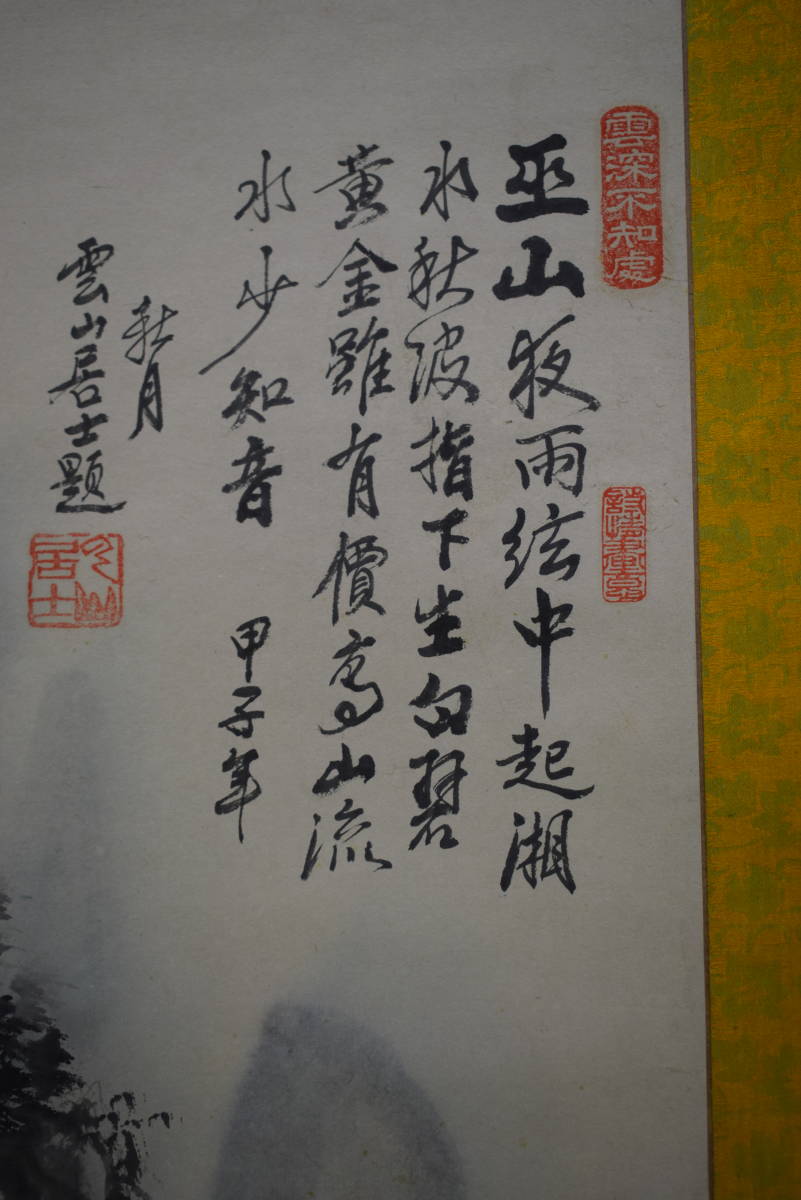 雲深不知處
詩情畫意
巫山夜雨絃中起湘
水秋波指下生白碧
黄金雖有價高山流
水少知音 甲子年
秋月
雲山居士題
雲山居士